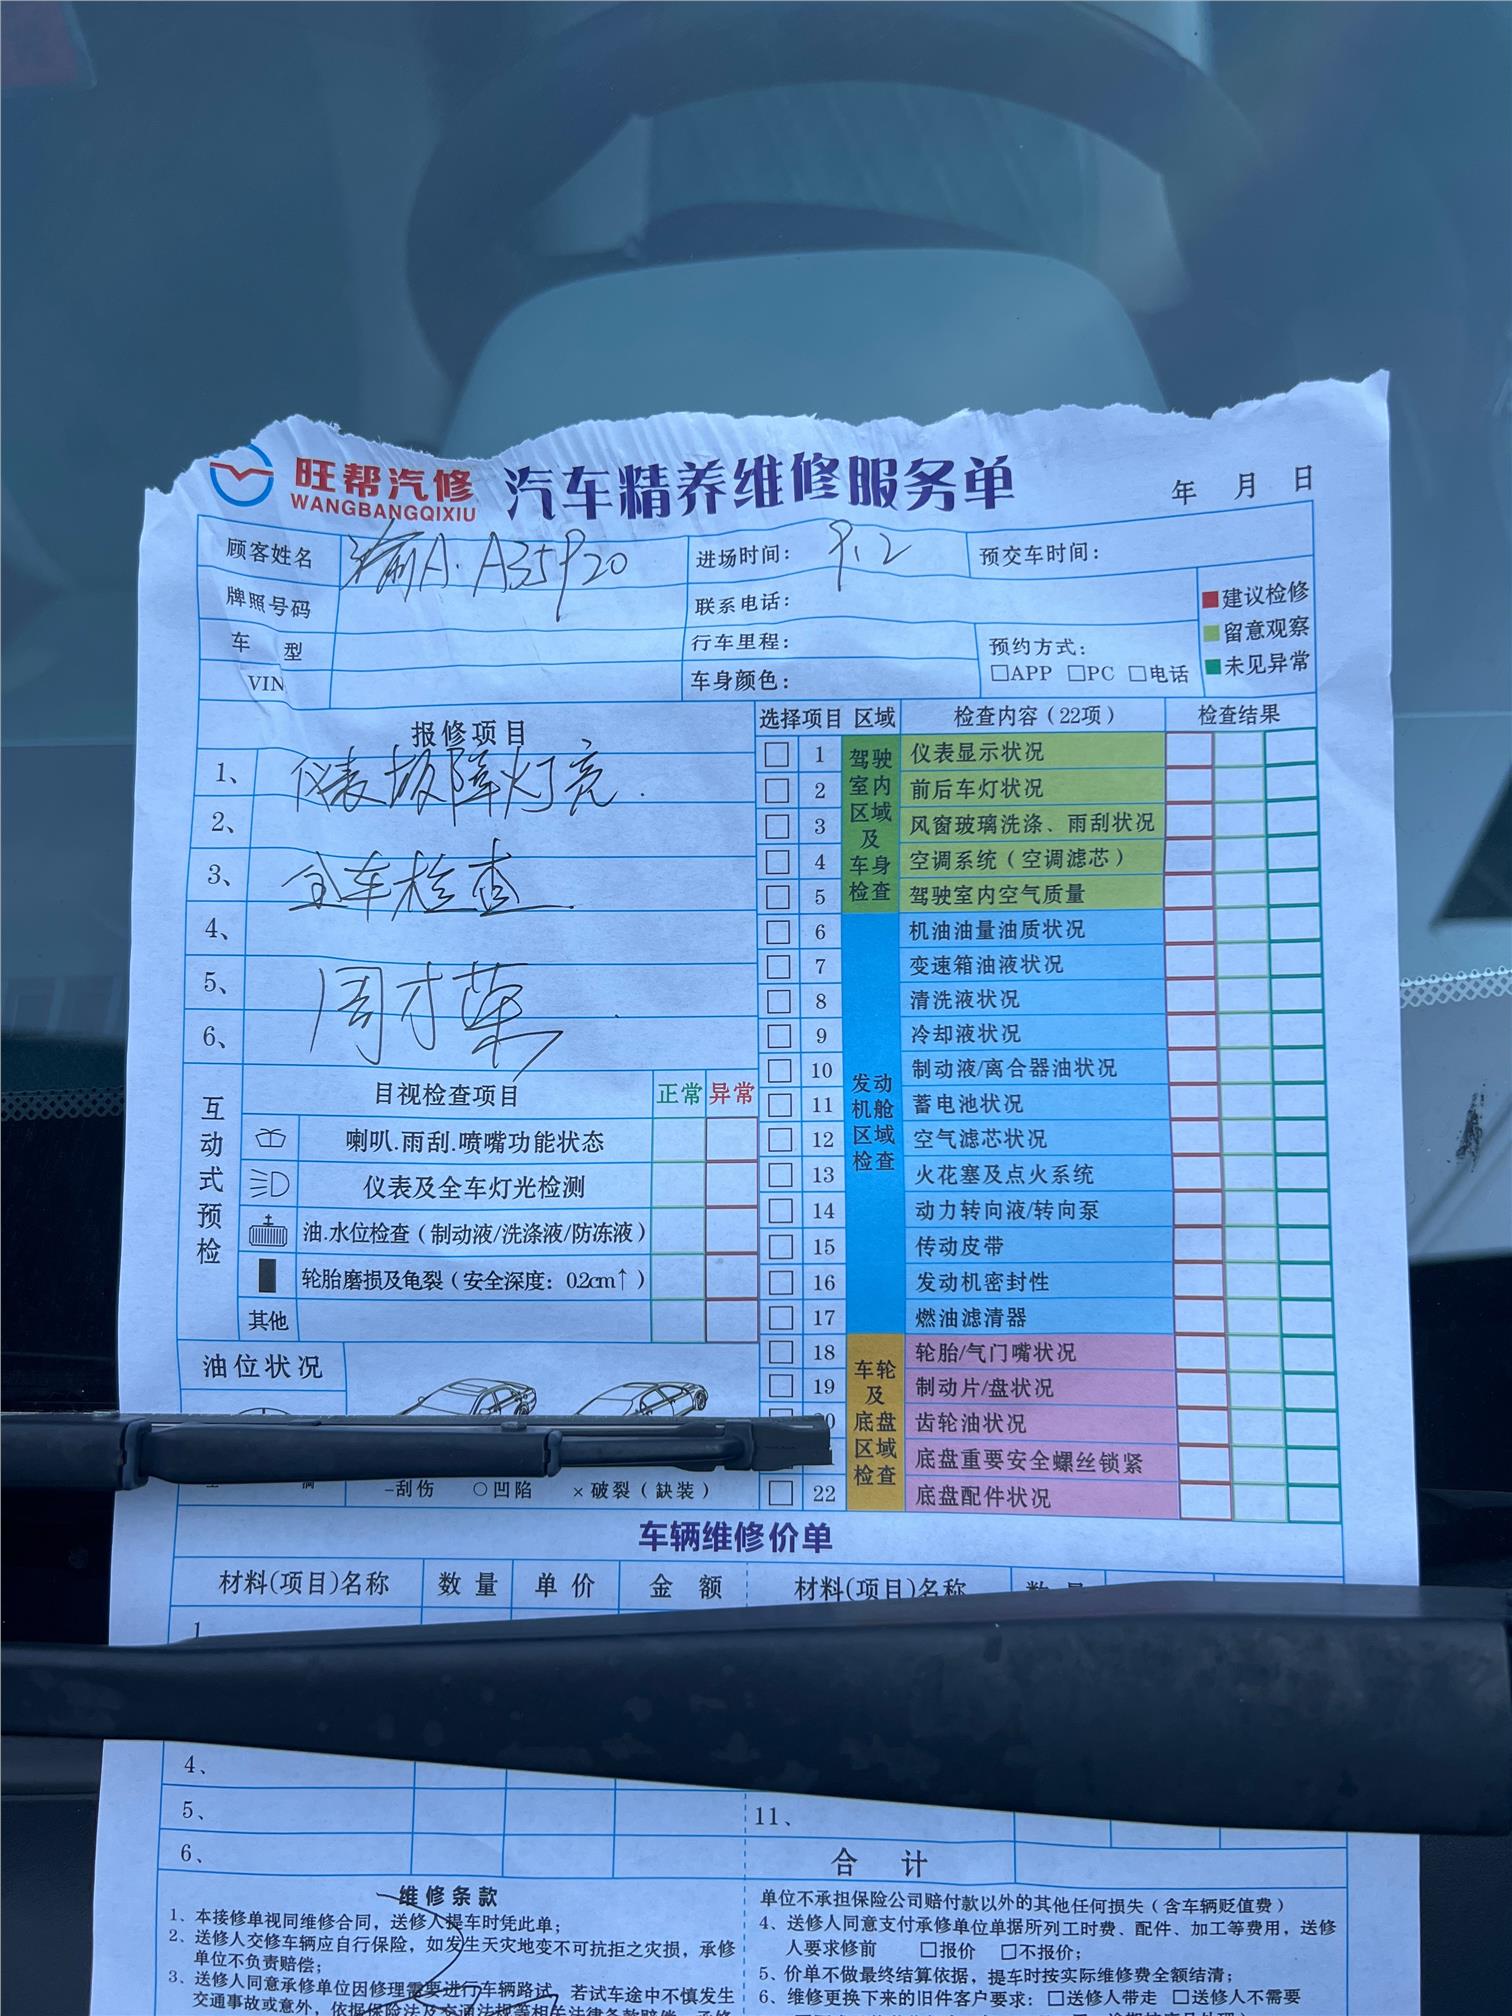 旺帮汽修 汽车精养维修服务单
WANGBANGQIXIU
年 月 日
顾客姓名 渝A.A35920 进场时间: 9.2 预交车时间:
牌照号码 联系电话:
车型 行车里程: 预约方式:
VIN 车身颜色: □APP □PC □电话
建议检修
留意观察
未见异常
报修项目
1、 仪表故障灯亮.
2、
3、 全车检查.
4、
5、 周才荣
6、
选择项目 区域 检查内容(22项) 检查结果
驾驶室内区域及车身检查
1 仪表显示状况
2 前后车灯状况
3 风窗玻璃洗涤、雨刮状况
4 空调系统(空调滤芯)
5 驾驶室内空气质量
发动机舱区域检查
6 机油油量油质状况
7 变速箱油液状况
8 清洗液状况
9 冷却液状况
10 制动液/离合器油状况
11 蓄电池状况
12 空气滤芯状况
13 火花塞及点火系统
14 动力转向液/转向泵
15 传动皮带
16 发动机密封性
17 燃油滤清器
车轮及底盘区域检查
18 轮胎/气门嘴状况
19 制动片/盘状况
齿轮油状况
底盘重要安全螺丝锁紧
22 底盘配件状况
互动式预检
目视检查项目 正常 异常
喇叭.雨刮.喷嘴功能状态
仪表及全车灯光检测
油.水位检查(制动液/洗涤液/防冻液)
轮胎磨损及龟裂(安全深度: 0.2cm↑)
其他
油位状况
-刮伤 ○凹陷 ×破裂(缺装)
车辆维修价单
材料(项目)名称 数量 单价 金额 材料(项目)名称 数量
1
4、
5、 11、
6、 合计
维修条款
1、本接修单视同维修合同，送修人提车时凭此单;
2、送修人交修车辆应自行保险，如发生天灾地变不可抗拒之灾损，承修
单位不负责赔偿;
3、送修人同意承修单位因修理需要进行车辆路试，若试车途中不慎发生
交通事故或意外，依据保险法及交通法规等相关法律条款赔偿，承修
单位不承担保险公司赔付款以外的其他任何损失(含车辆贬值费)
4、送修人同意支付承修单位单据所列工时费、配件、加工等费用，送修
人要求修前 □报价 □不报价;
5、价单不做最终结算依据，提车时按实际维修费全额结清;
6、维修更换下来的旧件客户要求: □送修人带走 □送修人不需要